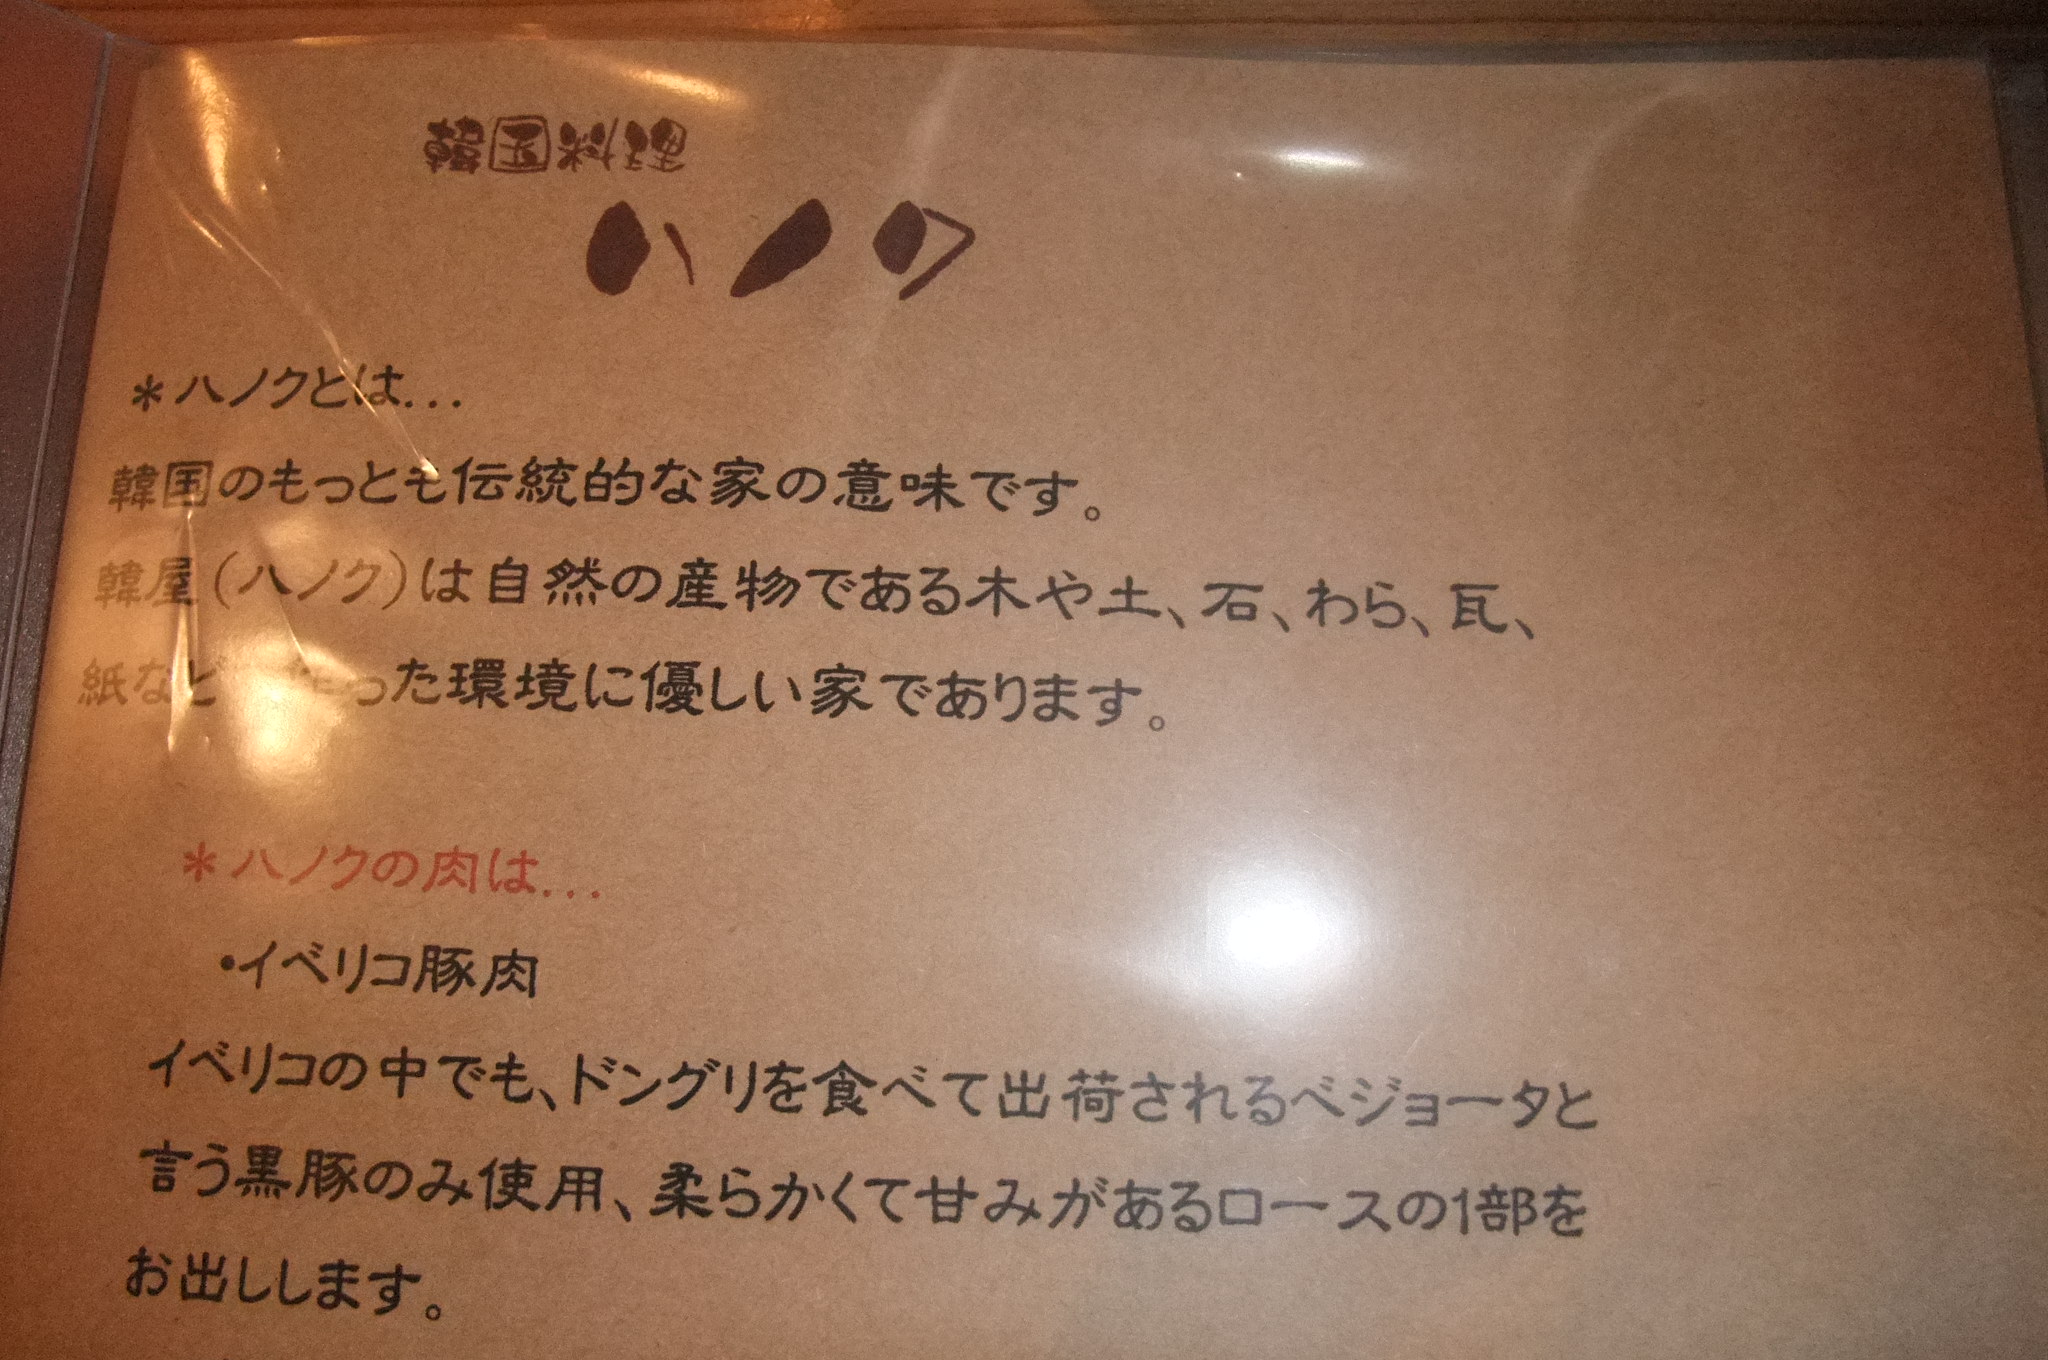 韓国料理
ハノク
＊ハノクとは...
韓国のもっとも伝統的な家の意味です。
韓屋（ハノク）は自然の産物である木や土、石、わら、瓦、
紙など作った環境に優しい家であります。
＊ハノクの肉は...
・イベリコ豚肉
イベリコの中でも、ドングリを食べて出荷されるベジョータと
言う黒豚のみ使用、柔らかくて甘みがあるロースの1部を
お出しします。